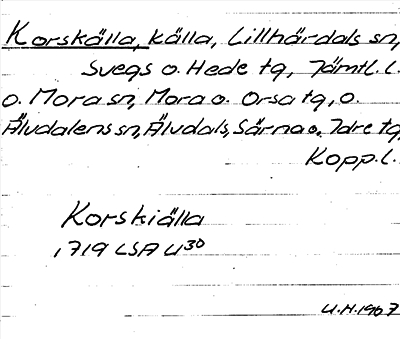 Korskälla, källa, Lillhärdals sn,
Svegs o. Hede tg, Jämtl. l.
o. Mora sn, Mora o. Orsa tg, o.
Älvdalens sn, Älvdals, Särna o. Idre tg,
Kopp. l.
Korskiälla
1719 LSA U30
U.H. 1967